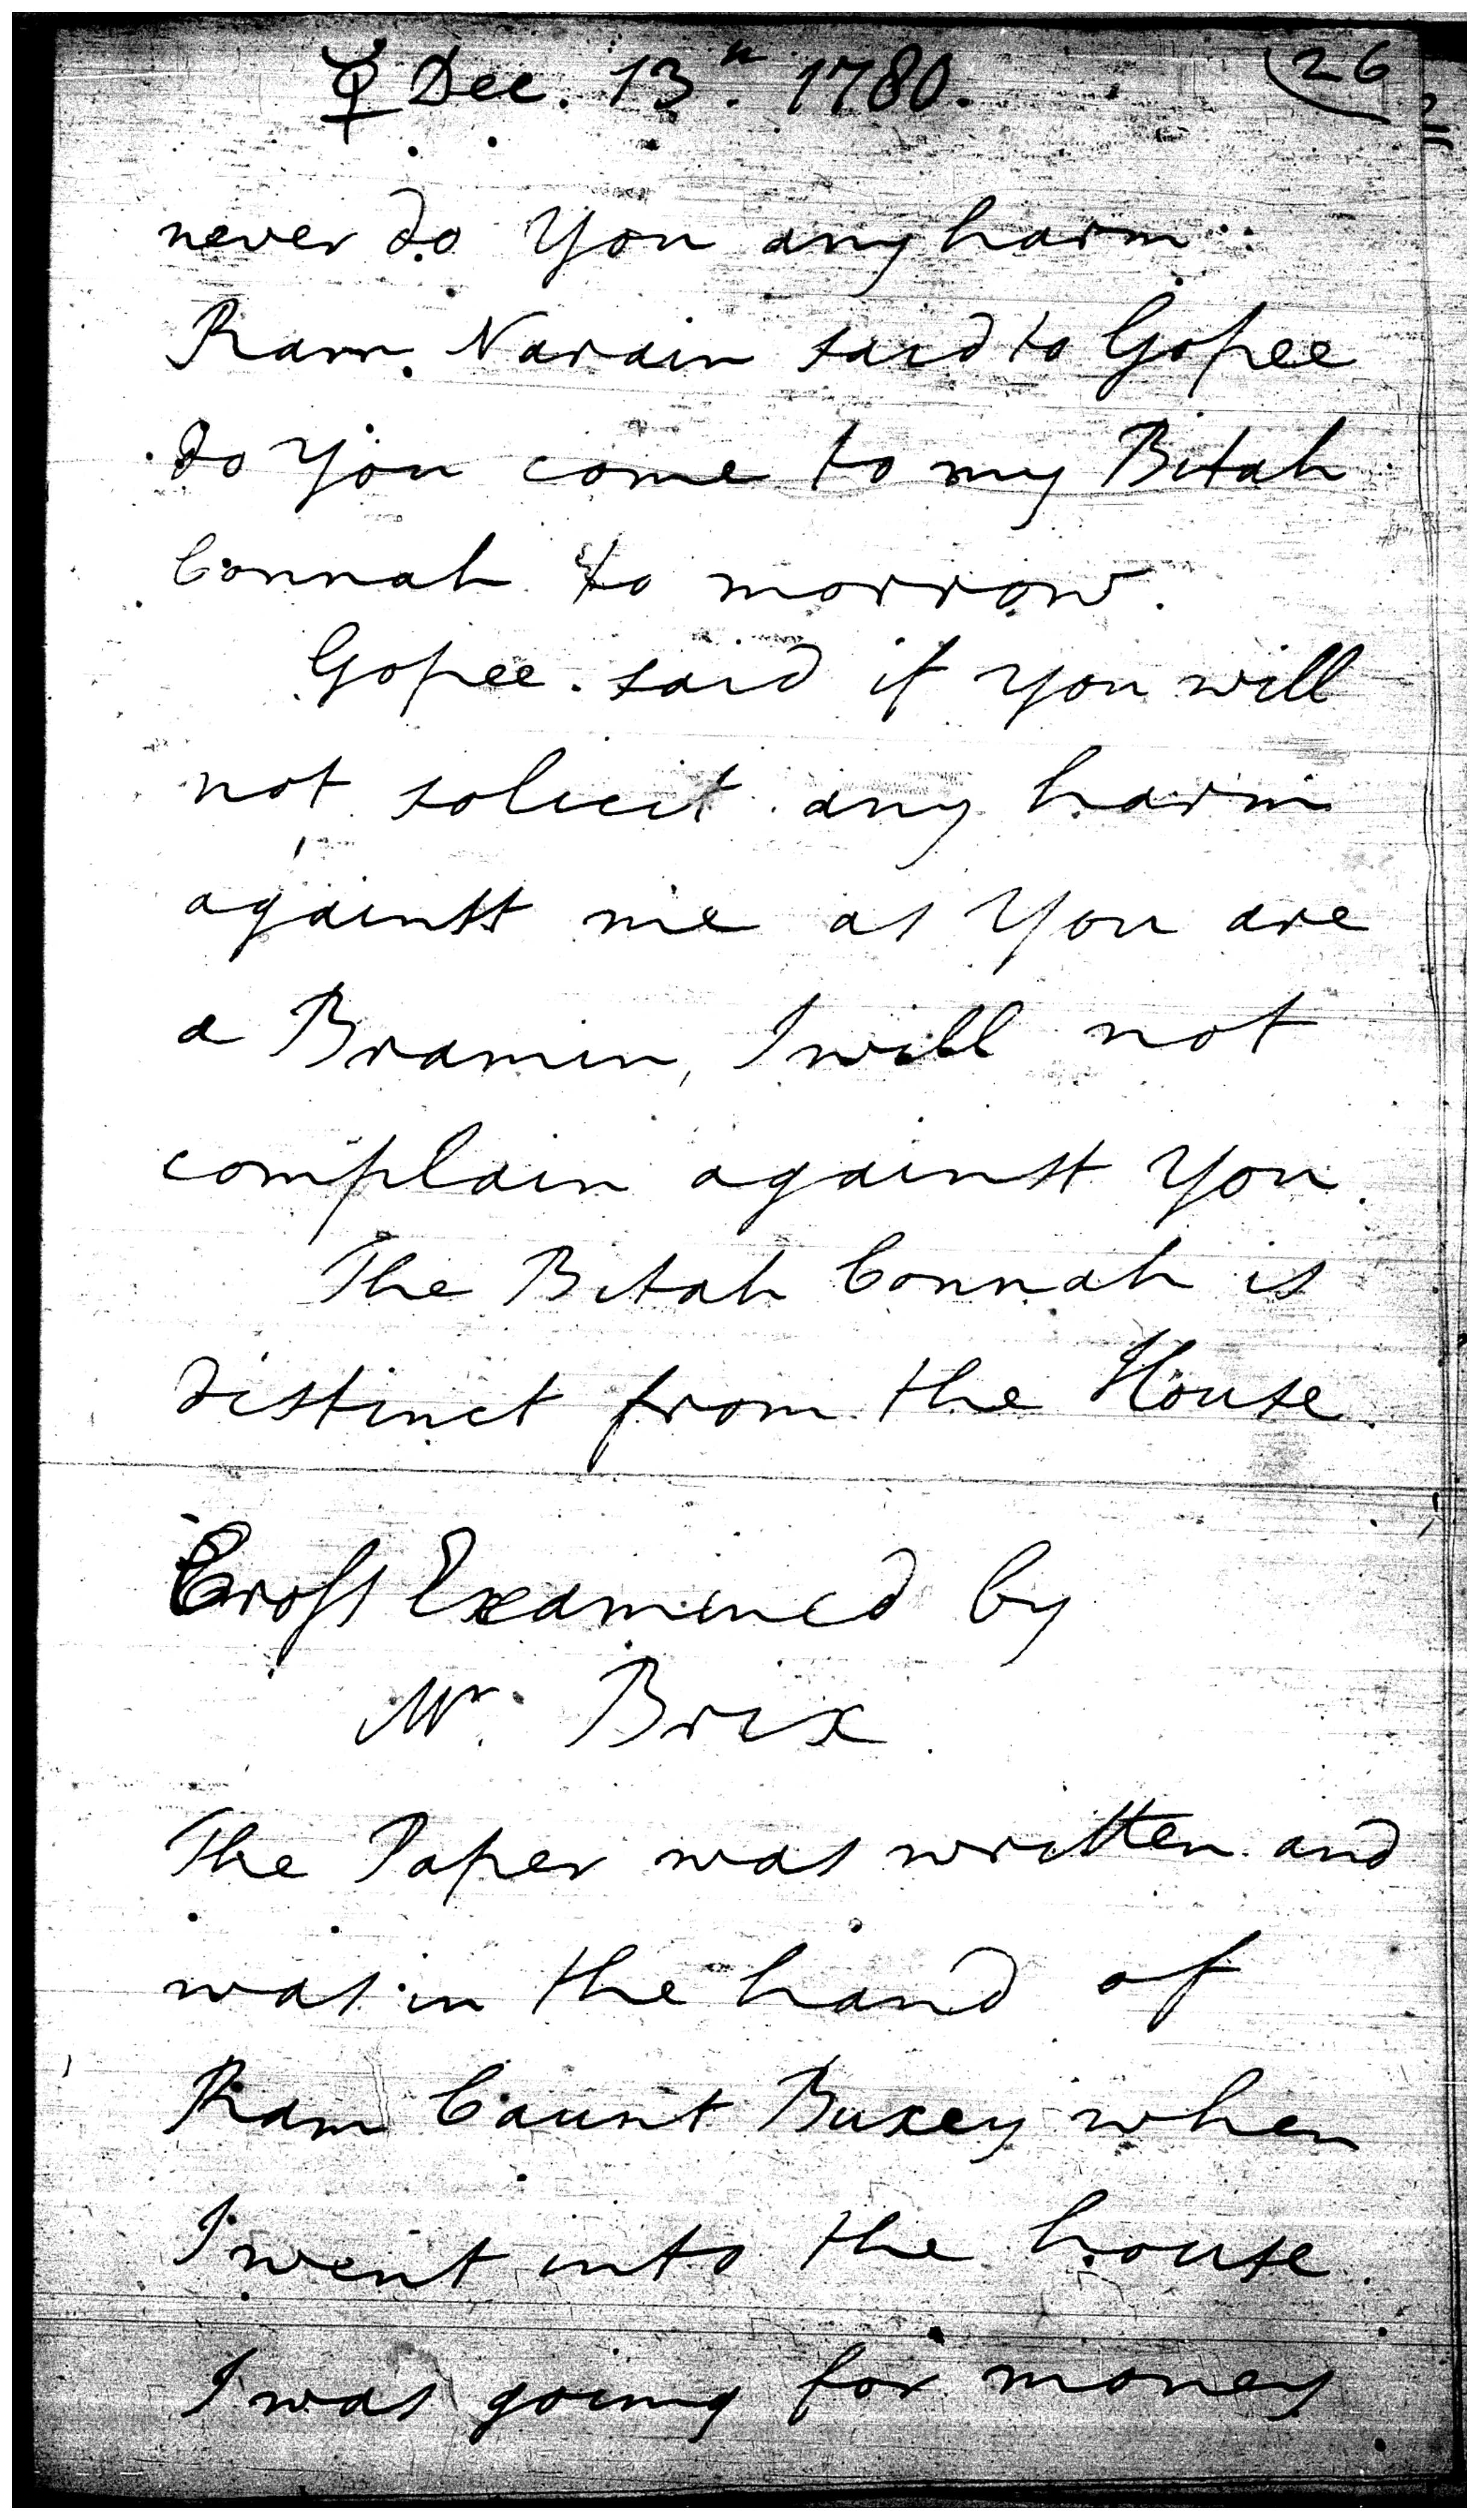 ♀ Dec. 13th. 1780. 26
never do you any harm.
Ram Narain said to Gopee
do you come to my Bitah
Connah to morrow.
Gopee said if you will
not solicit any harm
against me as you are
a Bramin, I will not
complain against you.
The Bitah Connah is
distinct from the House.
Cross Examined by
Mr. Brix.
The Paper was written and
was in the hand of
Ram Caunt Buxey when
I went into the house.
I was going for money